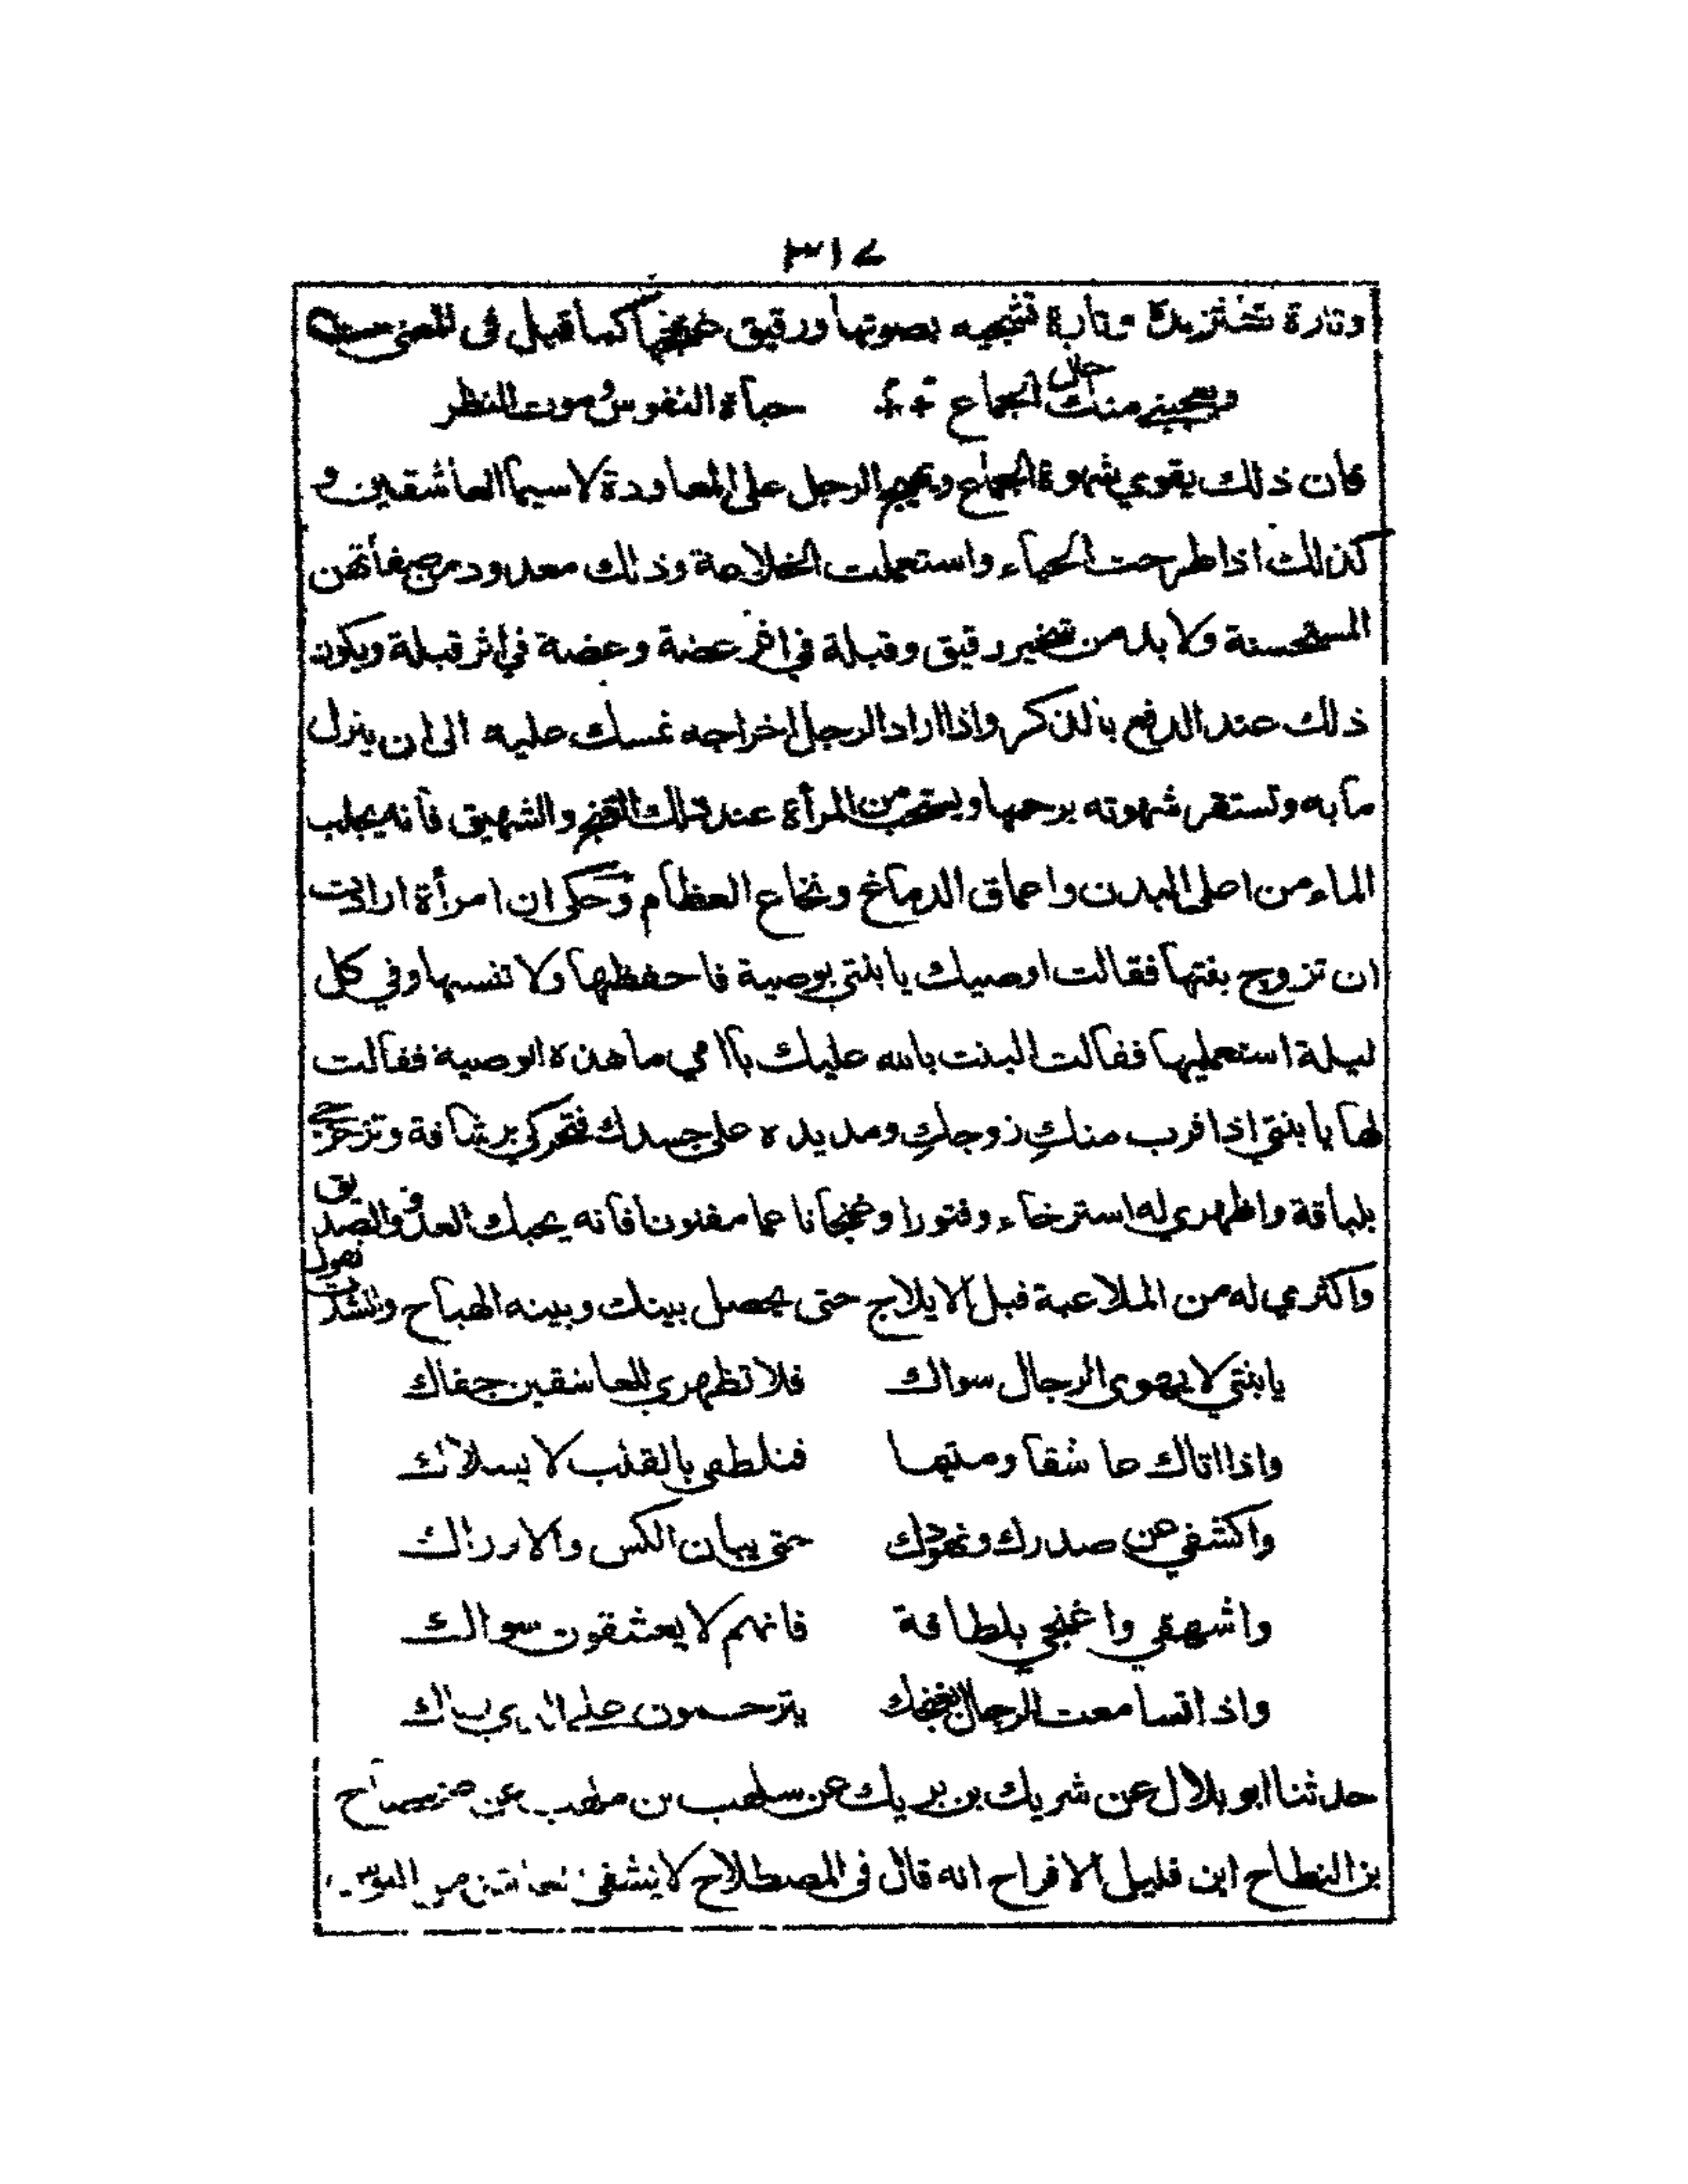 ٣١٧
وتارة تختزيك وتارة تشجيه بصوتها ورقيق غنجها كما قيل فى المعنى
ويعجبني منك حال الجماع حياة النفوس وموت النظر
فان ذلك يقوي شهوة الجماع ويهيج الرجل على المعاودة لا سيما العاشقين و
كذلك اذا طرحت الحياء واستعملت الخلاعة وذلك معدود من صفاتهن
المستحسنة ولا بد من تنخير رقيق وقبلة في اثر عضة وعضة في اثر قبلة ويكون
ذلك عند الدفع بالذكر واذا اراد الرجل اخراجه تمسك عليه الى ان ينزل
مابه وتستقر شهوته برحمها ويستحب من المرأة عند ذلك الغنج والشهيق فانه يجلب
الماء من اصل البدن واعماق الدماغ ونخاع العظام وحكى ان امرأة ارادت
ان تزوج بنتها فقالت اوصيك يا بنتي بوصية فاحفظيها ولا تنسيها وفي كل
ليلة استعمليها فقالت البنت بالله عليك ياامي ما هذه الوصية فقالت
لها يا بنتي اذا قرب منكِ زوجكِ ومد يده على جسدك فتحركي برشاقة وتزحزحي
بلباقة واظهري له استرخاء وفتورا وغنجا فانه يحبك العدو والصديق
واكثري له من الملاعبة قبل الايلاج حتى يحصل بينك وبينه الهياج وانشدت تقول
يابنتي لا يهوى الرجال سواك فلا تظهري للعاشقين جفاك
واذا اتاك عاشقا ومتيما فتلطفي بالقلب لا يسلاك
واكشفي عن صدرك ونهودك حتى يبان الكس والاوراك
واشهقي واغنجي بلطافة فانهم لا يعشقون سواك
واذا تسامعت الرجال بغنجك يترحمون على الذي رباك
حدثنا ابو بلال عن شريك بن بريك عن سلهب بن ملهب عن
بن النطاح ابن قليل الافراح انه قال فى المصطلاح لا ينشفي